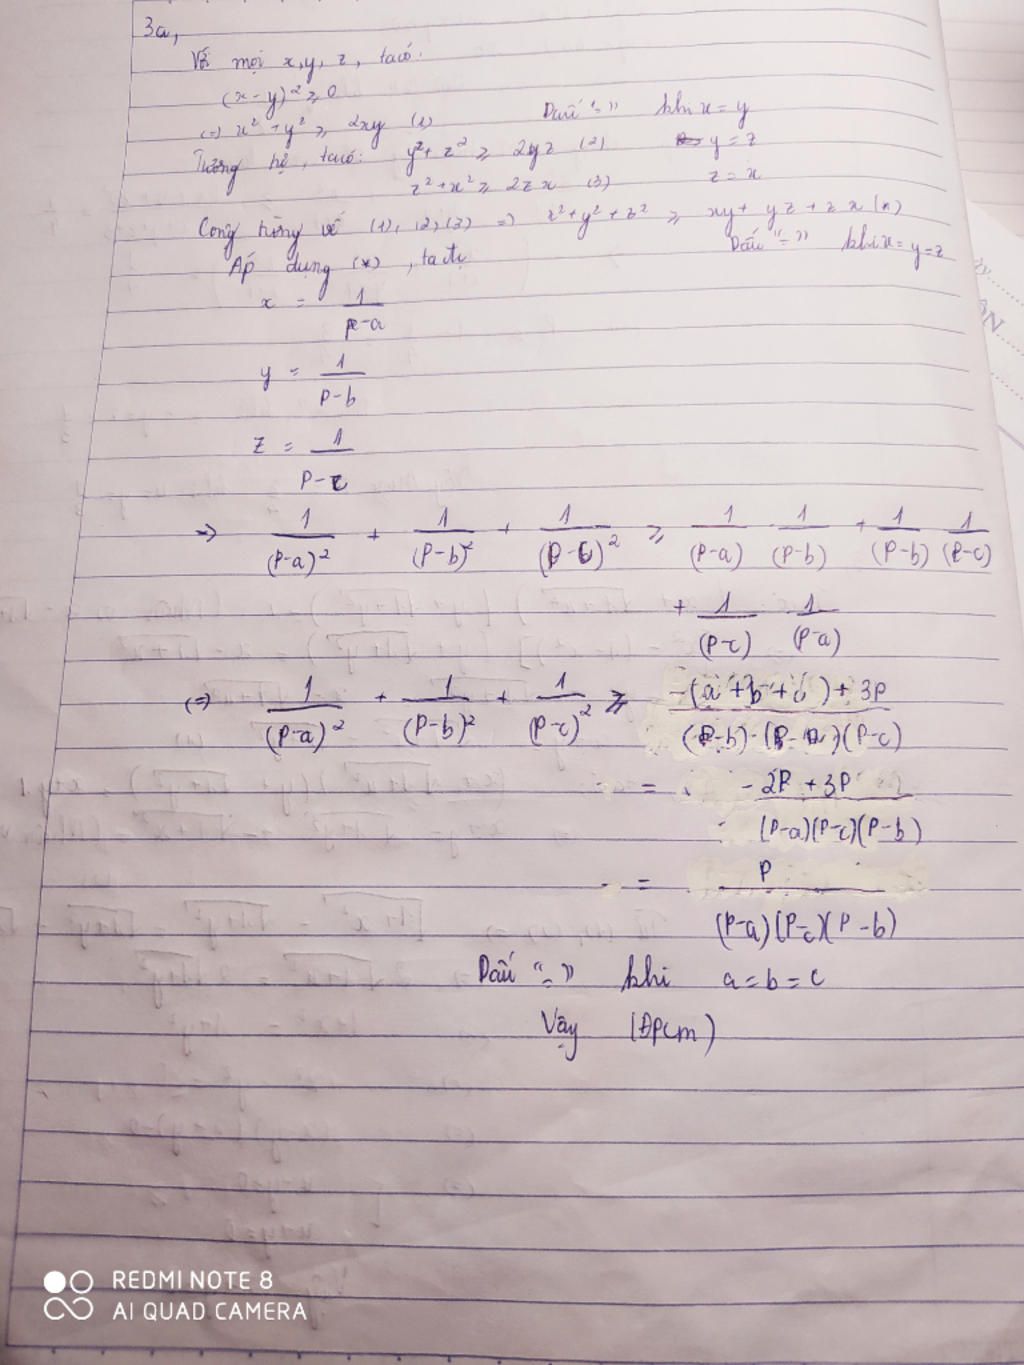 3a,
Với mọi x, y, z, ta có:
(x - y)² ≥ 0
(=) x² + y² ≥ 2xy (1) Dấu "=" khi x = y
Tương tự, ta có: y² + z² ≥ 2yz (2) y = z
z² + x² ≥ 2zx (3) z = x
Cộng từng vế (1), (2), (3) => x² + y² + z² ≥ xy + yz + zx (*)
Dấu "=" khi x = y = z
Áp dụng (*), ta đc
x = 1/(p-a)
y = 1/(p-b)
z = 1/(p-c)
=> 1/(p-a)² + 1/(p-b)² + 1/(p-c)² ≥ 1/(p-a) 1/(p-b) + 1/(p-b) 1/(p-c)
+ 1/(p-c) 1/(p-a)
(=) 1/(p-a)² + 1/(p-b)² + 1/(p-c)² ≥ (-(a+b+c)+3p)/((p-b)·(p-a)(p-c))
= (-2p+3p)/((p-a)(p-c)(p-b))
= p/((p-a)(p-c)(p-b))
Dấu "=" khi a = b = c
Vậy (Đpcm)
REDMI NOTE 8
AI QUAD CAMERA